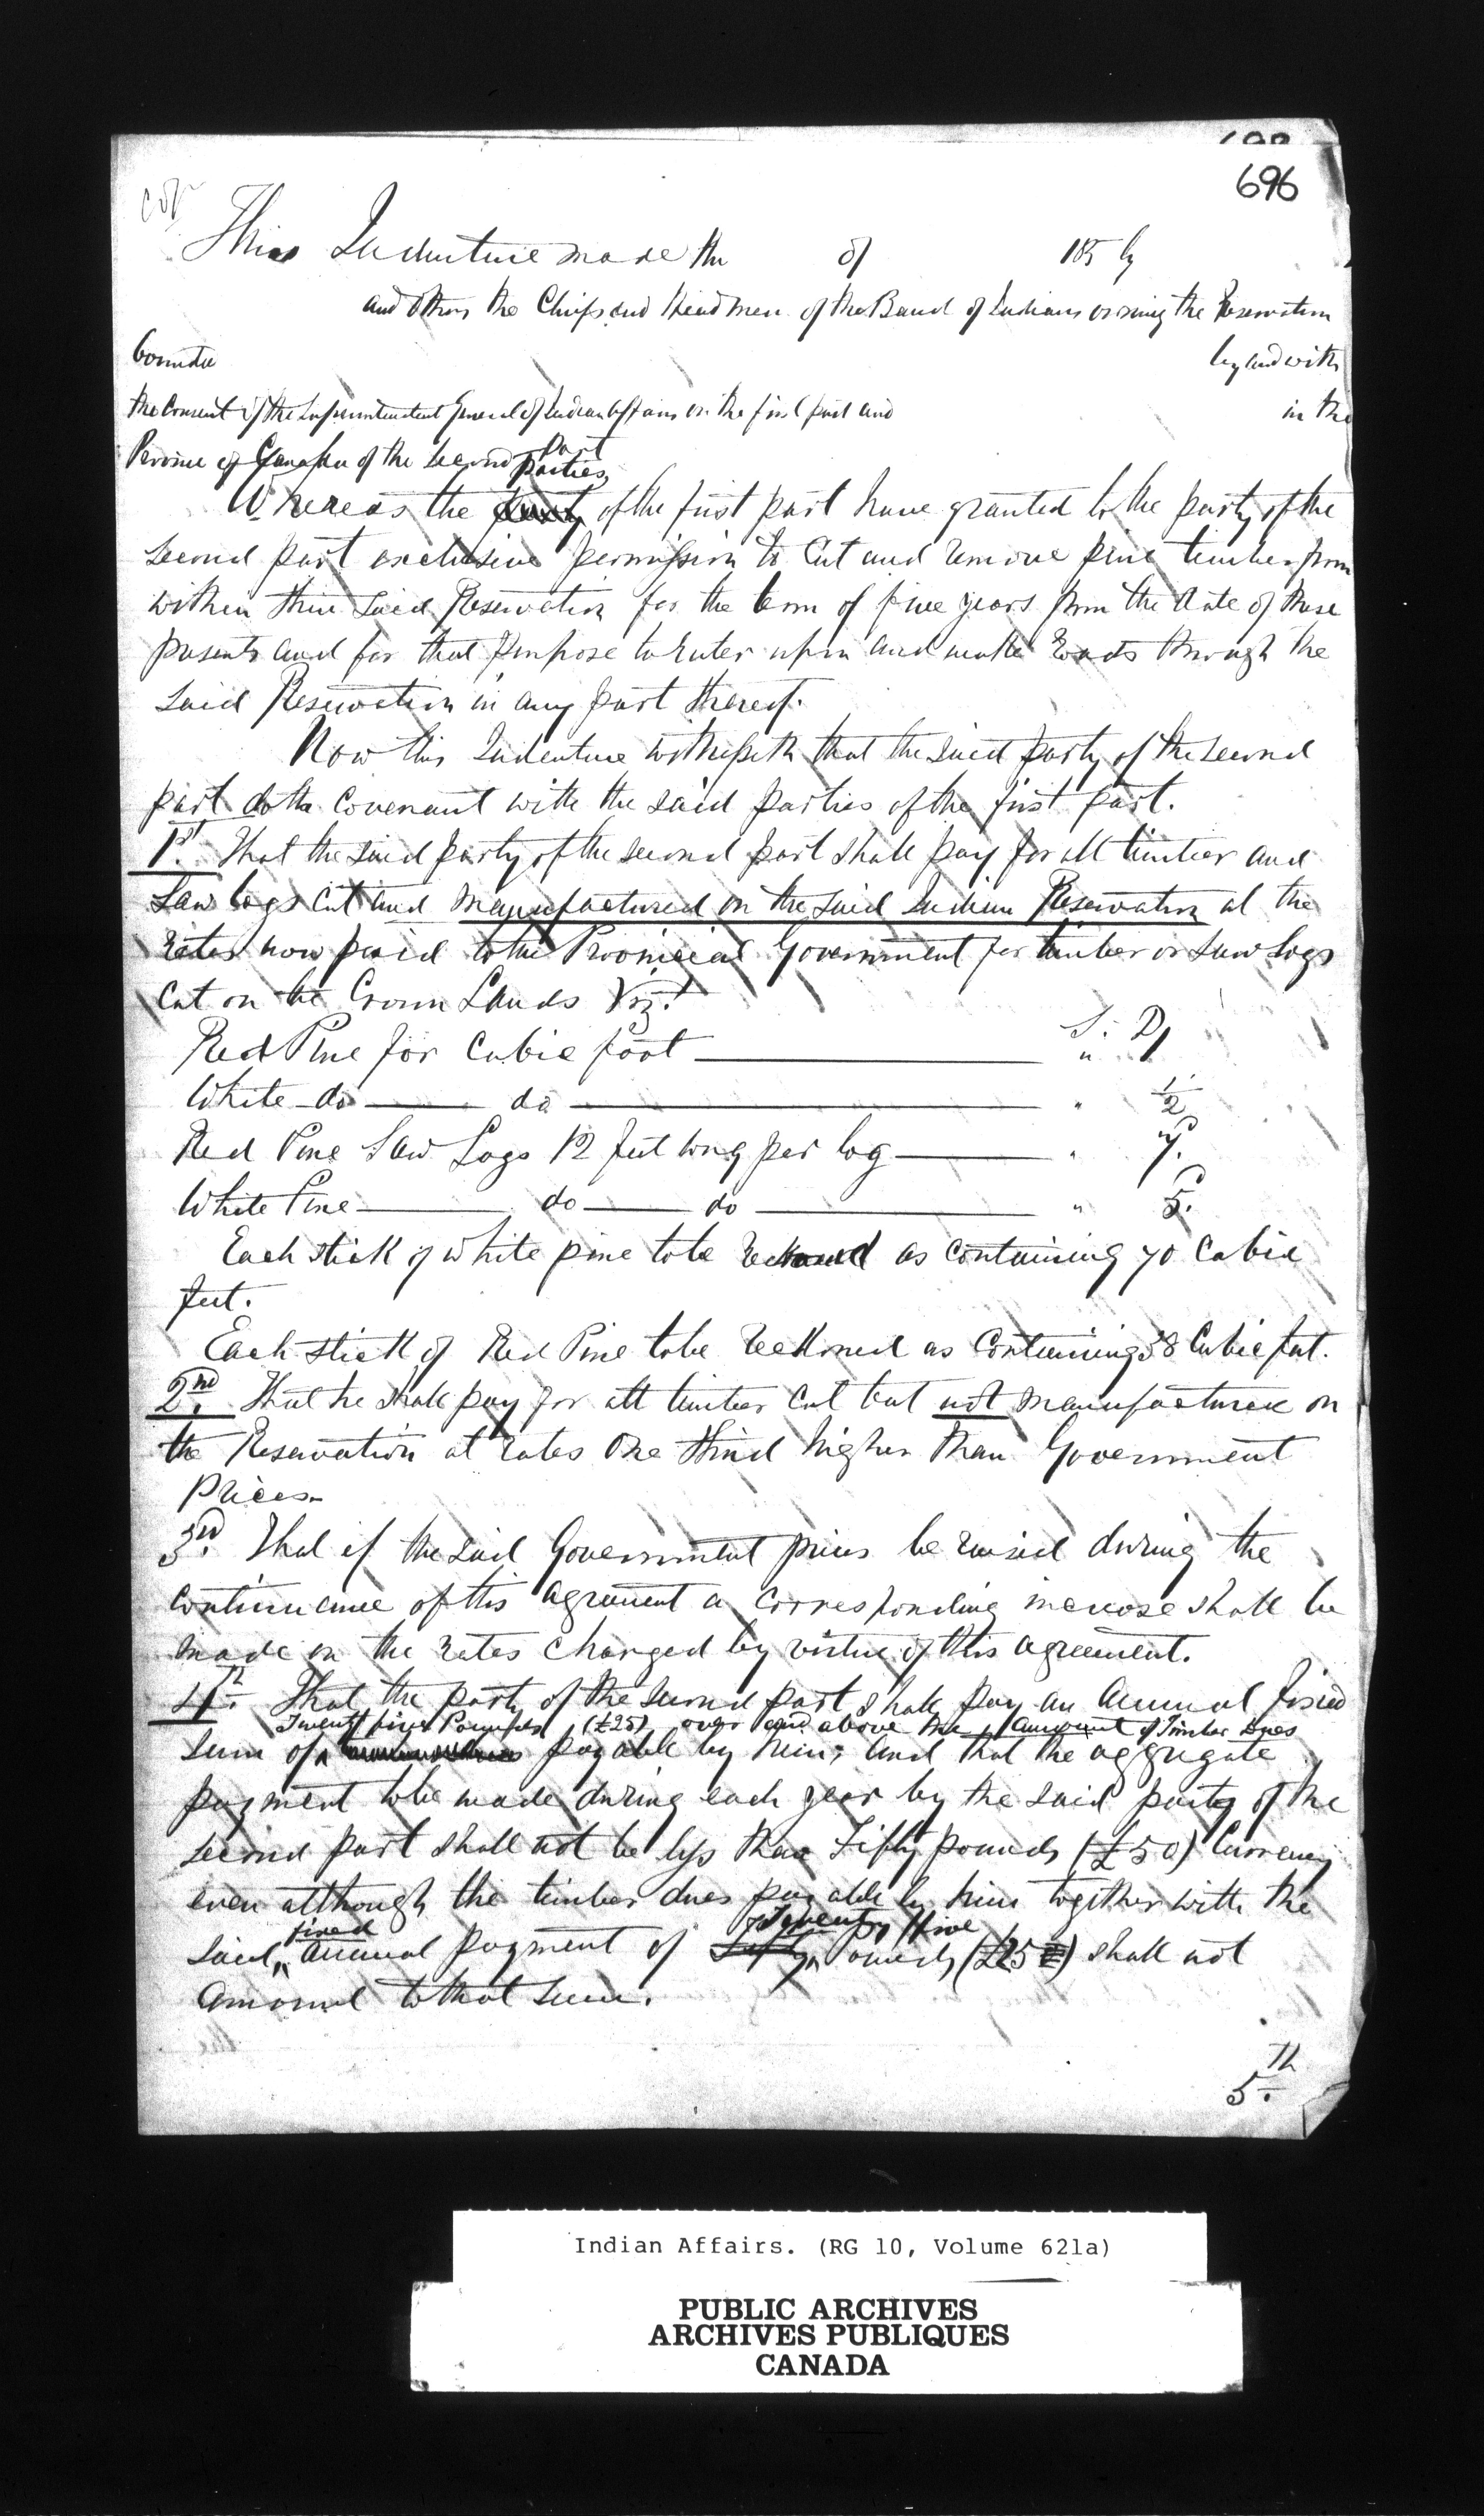 696
This Indenture made the of 185 by
and others the Chiefs and Head men of the Band of Indians owning the Reservation
bounded
by and with
the Consent of the Superintendent General of Indian Affairs on the first part and in the
Province of Canada of the Second Part
parties
Whereas the party of the first part have granted to the party of the
second part exclusive permission to Cut and remove pine timber from
within their said Reservation for the term of five years from the date of these
presents and for that purpose to enter upon and make roads through the
said Reservation in any part thereof.
Now this Indenture witnesseth that the said party of the second
part doth Covenant with the said parties of the first part.
1st. That the said party of the second part shall pay for all timber and
Saw Logs Cut and manufactured on the said Indian Reservation at the
rates now paid to the Provincial Government for timber or Saw Logs
Cut on the Crown Lands Viz:
S. D
Red Pine for Cubic foot " 1
White do do " 1/2
Red Pine Saw Logs 12 feet long per log " 7.
White Pine do do " 5.
Each stick of white pine to be reckoned as containing 70 Cubic
feet.
Each stick of Red Pine to be reckoned as Containing 38 Cubic feet.
2nd. That he shall pay for all timber cut but not manufactured on
the Reservation at rates One third higher than Government
Prices.
3rd. That if the said Government prices be raised during the
continuance of this agreement a corresponding increase shall be
made on the rates charged by virtue of this agreement.
4th. That the party of the second part shall pay an annual fixed
Twenty five Pounds (£25) over and above the amount of Timber Dues
sum of payable by him; and that the aggregate
payment to be made during each year by the said party of the
second part shall not be less than Fifty pounds (£50) Currency
even although the timber dues payable by him together with the
fixed Twenty five
said annual payment of Fifty Pounds (£25) shall not
amount to that sum.
5th.
Indian Affairs. (RG 10, Volume 621a)
PUBLIC ARCHIVES
ARCHIVES PUBLIQUES
CANADA